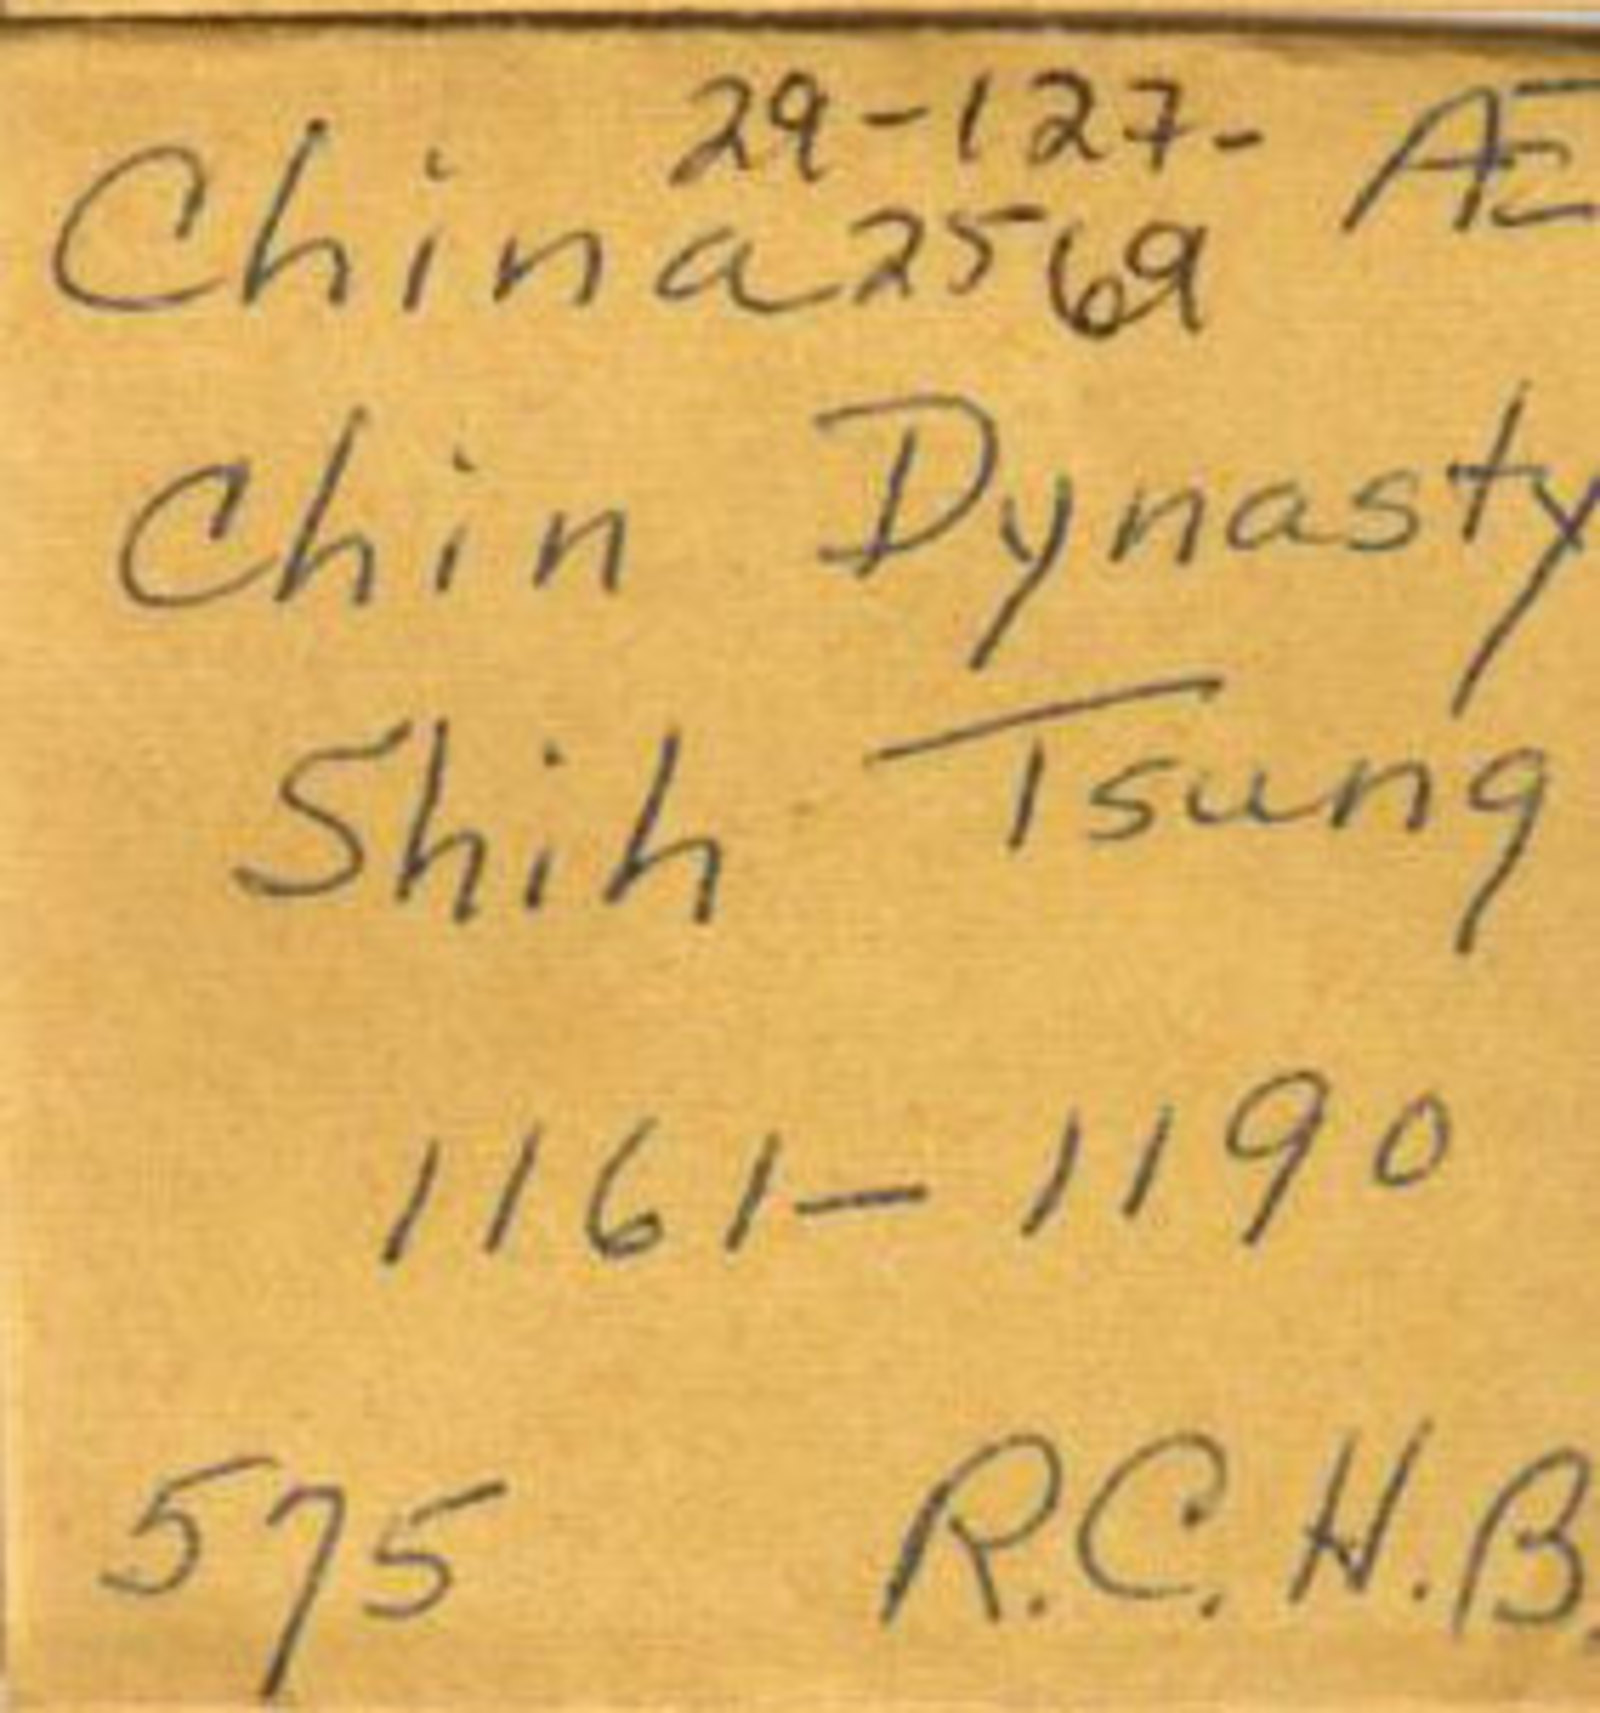 29-127- Æ
China 2569
Chin Dynasty
Shih Tsung
1161-1190
575 R.C.H.B.